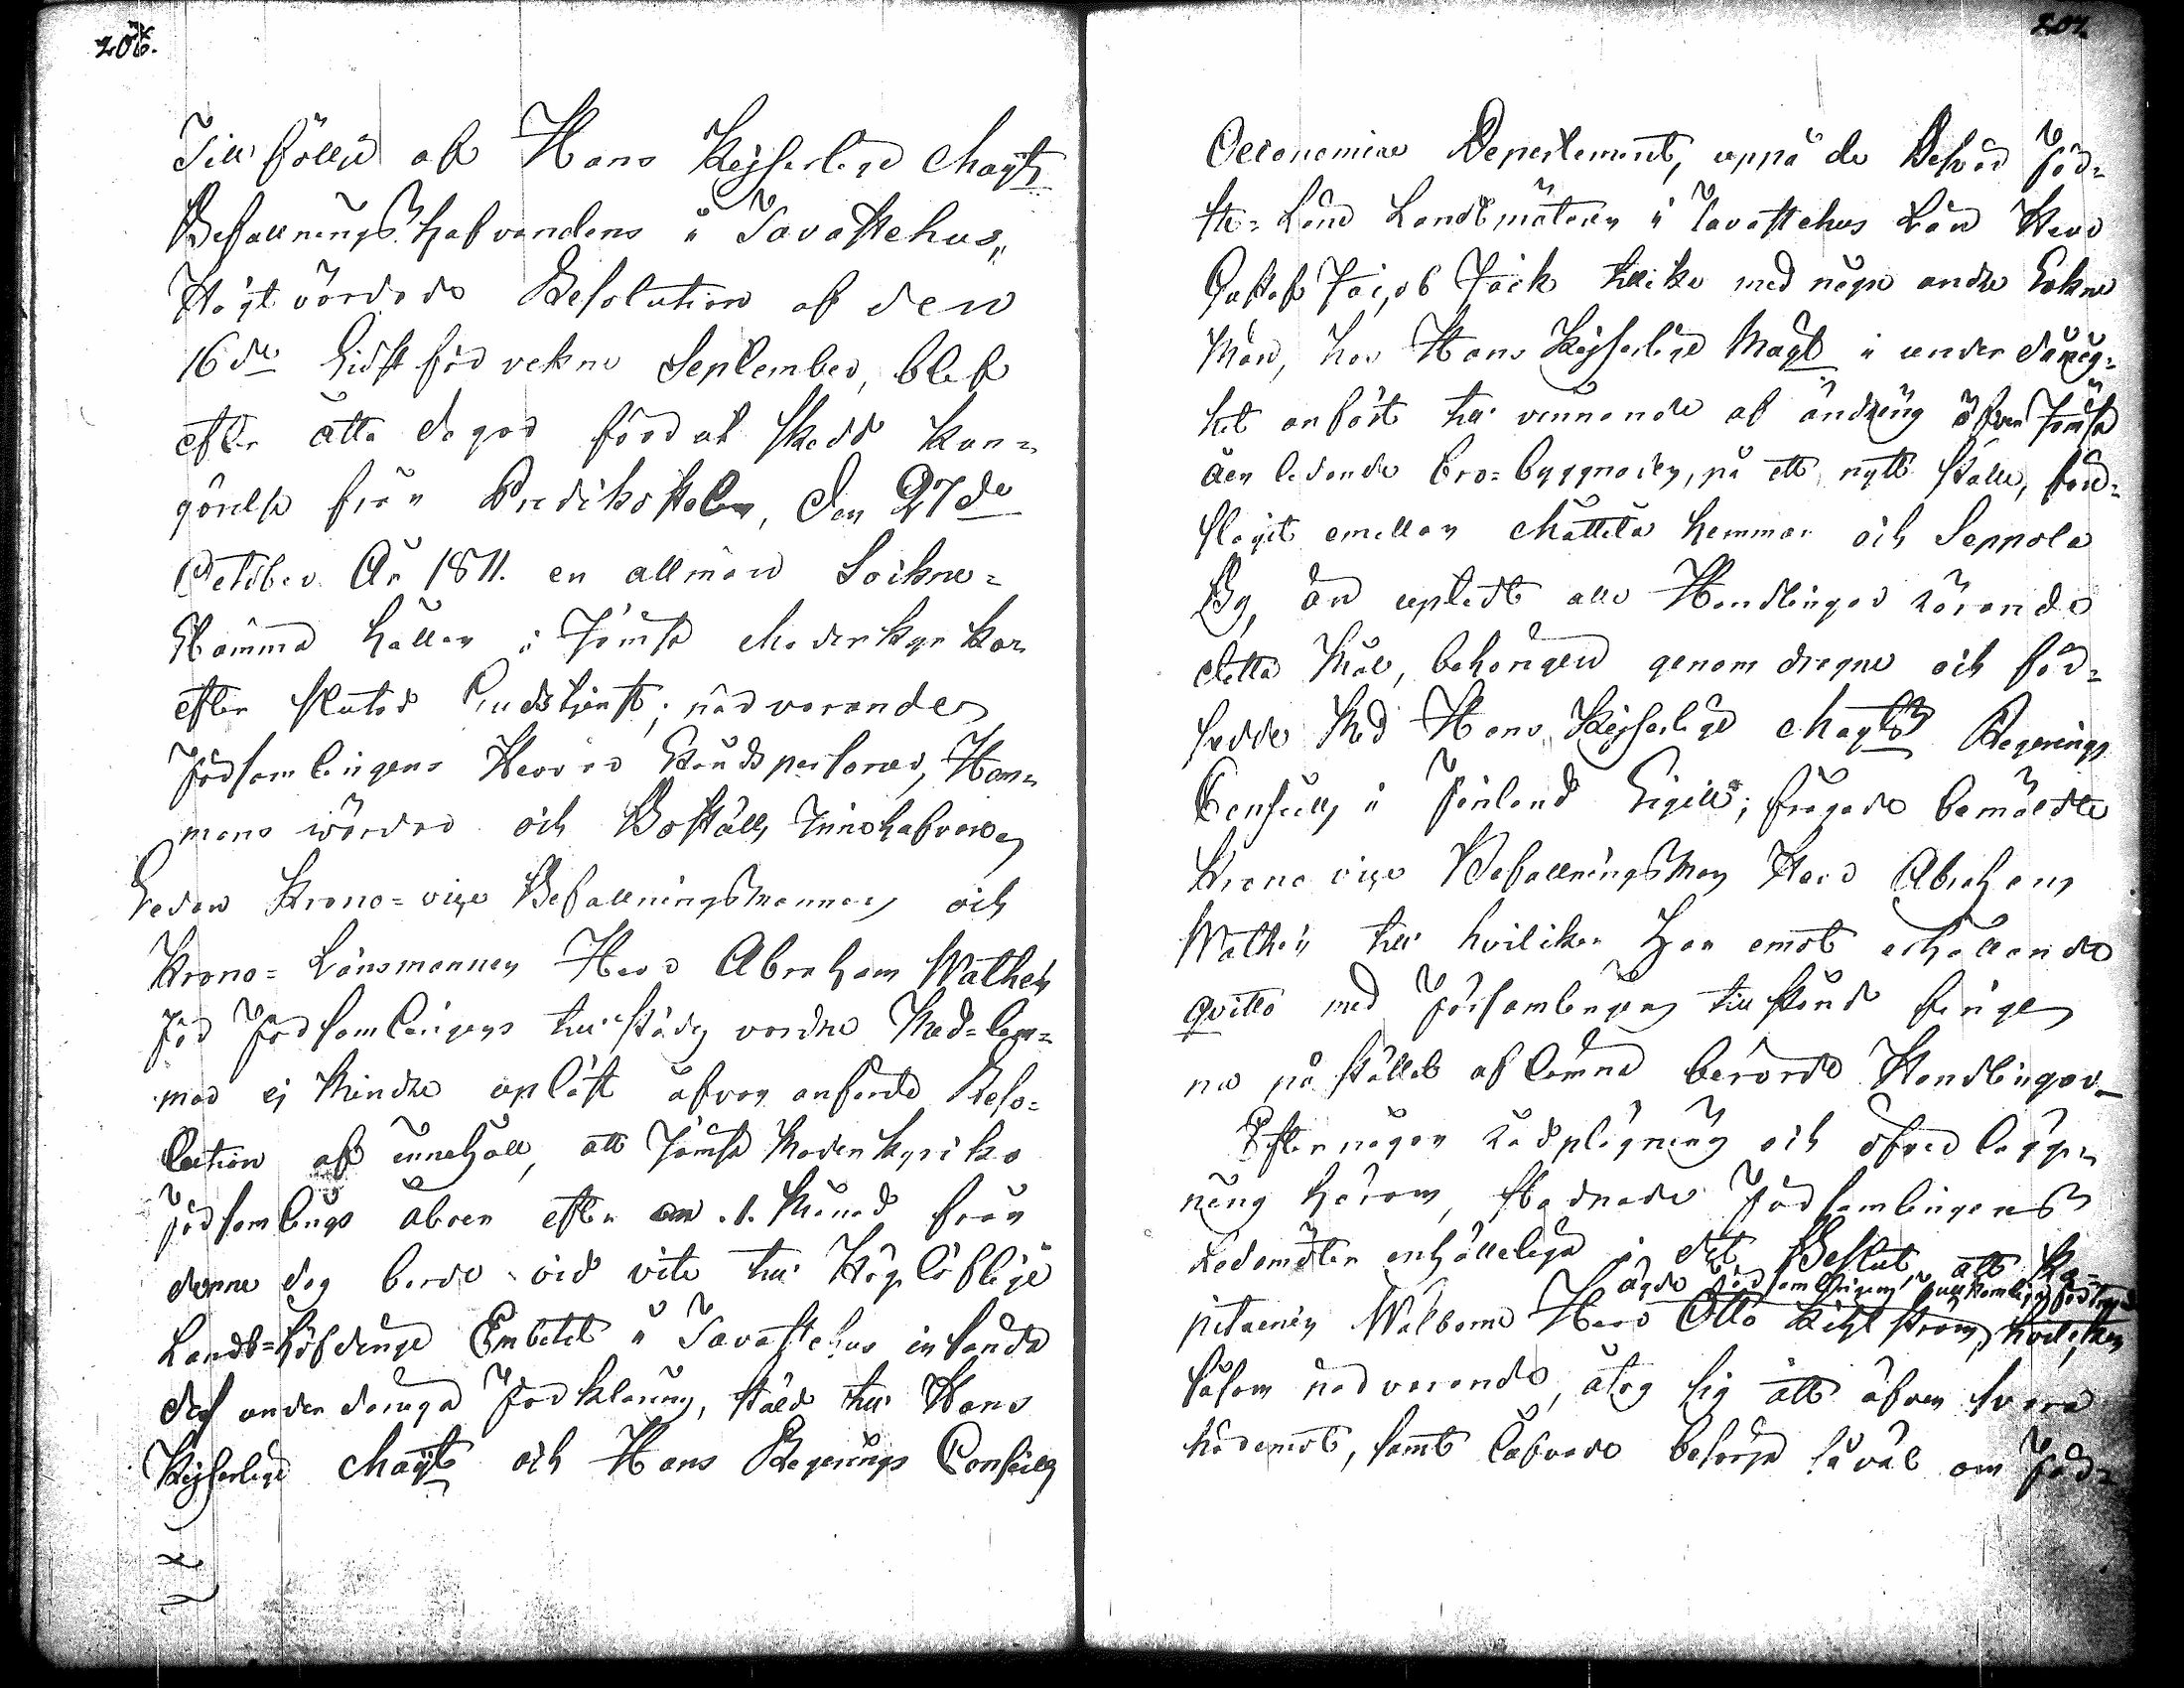 206.
Till följd af Hans Kejserlige Mayts
Befallningshafvandens i Tavastehus,
Högt vördade Resolution af den
16de Sidstförvekne September, blef
efter åtta dagar förut skedd kun=
görelse från Predikostolen, den 27de
October År 1811. en allmän Sockne=
Stämma hållen i Jämsä Moderkyrka
efter slutad Gudstjenst; närvarande
Församlingens Herrar Stånds personer, Hem=
mans värdar och Boställs Innehafvare,
Sedan Krono=vice Befallningsmannen och
Krono=Länsmannen Herr Abraham Wathén
för Församlingens tillstädes vordne Med=lem=
mar ej mindre upläst åfvan anförde Reso=
lution af innehåll, att Jämsä Moderkyrko
Församlings åboer efter en .1. Månad från
denne dag borde vid vite till Höglöflige
Lands=Höfdinge Embetet i Tavastehus insända
dess underdåniga Förklaring, stäld till Hans
Kejserlige Mayt och Hans Regerings Conseills
207.
Oeconomiae Departement, uppå de Besvär För=
ste=Land Landtmätaren i Tavastehus Län Herr
Gustaf Jacob Jack tillika med någre andre Sokne
Män, hos Hans Kejserlige Mayt i underdånig=
het anfört till vinnande af ändring öfver Jämsä
åen ledande Bro=byggnaden, på ett nytt ställe, före=
slagit emellan Mattila hemman och Seppola
By, än uplett alla Handlingar rörande
detta Mål, behörigen genomdragne och för=
sedde Med Hans Kejserlige Mayts Regerings
Conseills i Finland Sigill; frågade bemälde
Krono vice Befallningsman Herr Abraham
Wathén till hvilken Han emot erhållande
qvitto med Församlingens tillstånd finge
nu på stället aflämna berörde Handlingar.
Efter någon rådplägning och öfverlägg=
ning härom, stadnade Församlingens
Ledamöter enhälleligen i det Beslut att Ka=
ägde Församlingens fullkomliga förtroende
pitainen Wälborne Herr Otto hvilken
såsom närvarande, åtog sig att äfven svara
häremot, samt lofvade besörja såväl om För=